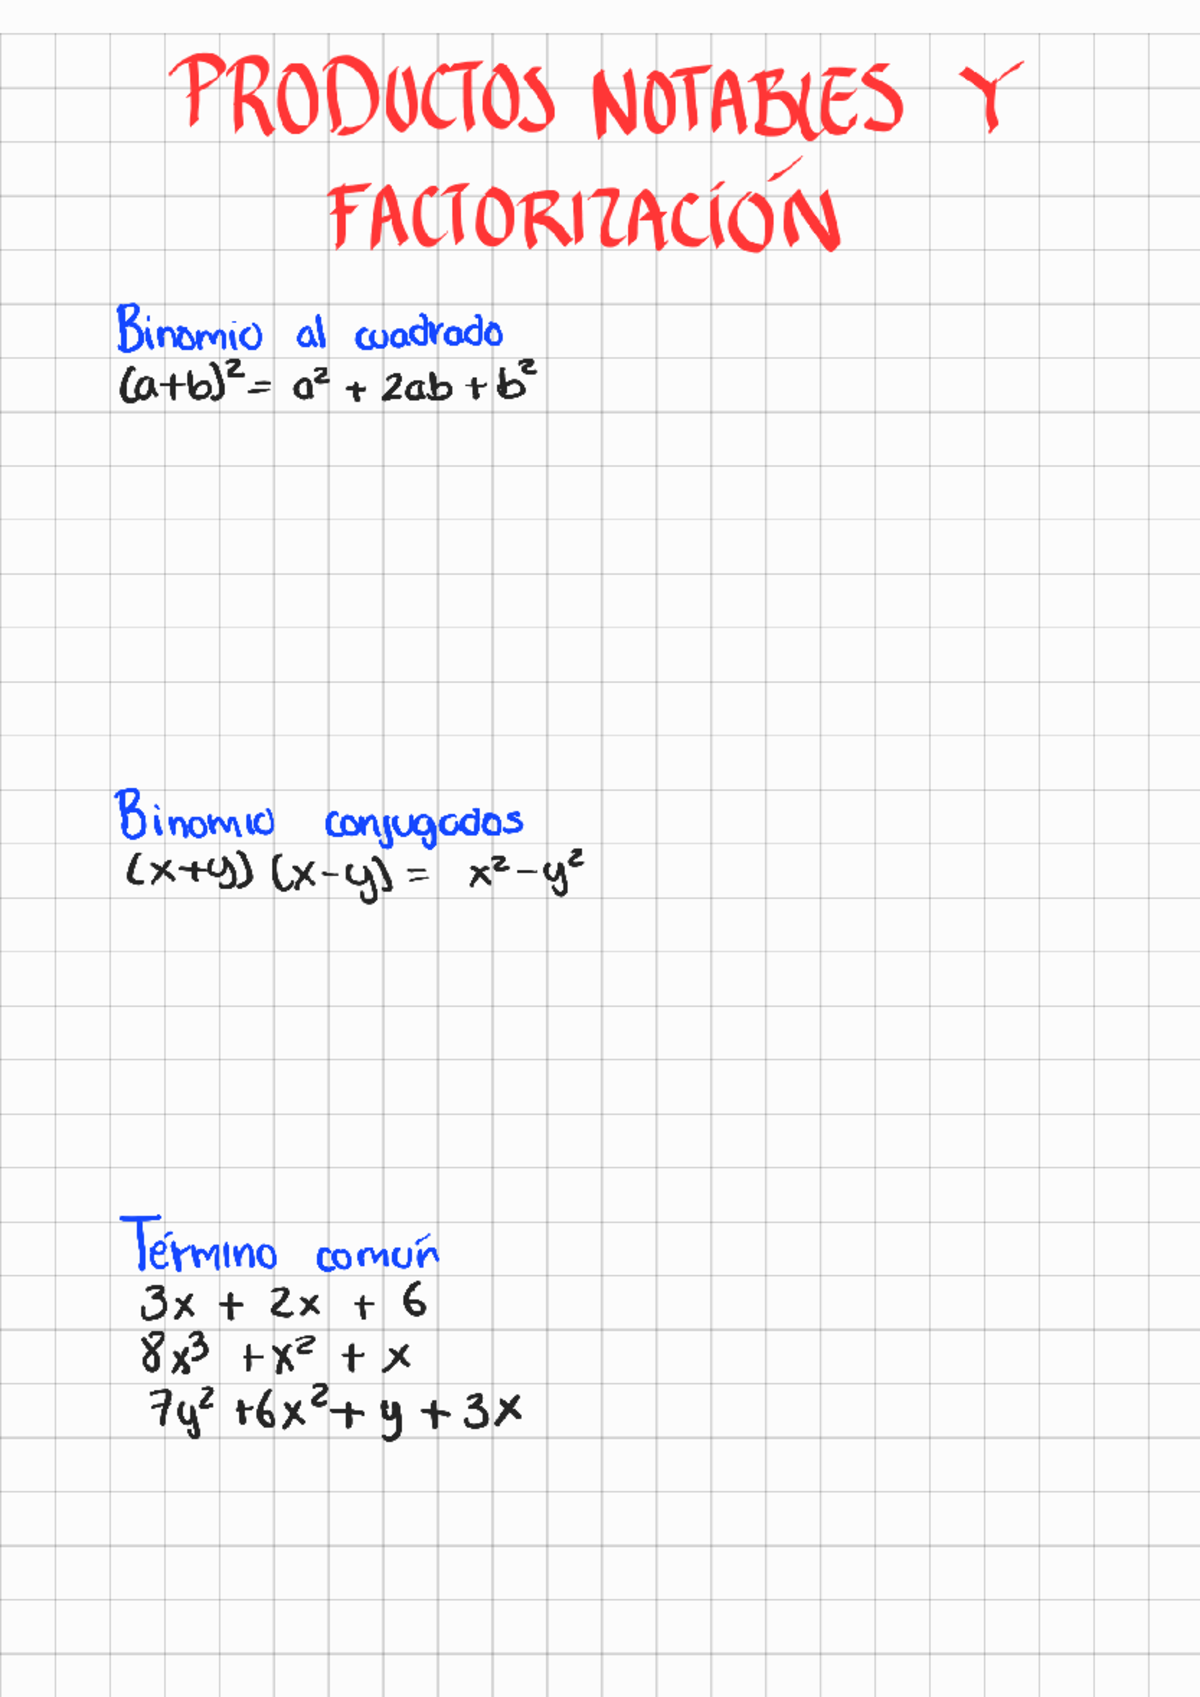 PRODUCTOS NOTABLES Y
FACTORIZACIÓN
Binomio al cuadrado
(a+b)² = a² + 2ab + b²
Binomio conjugados
(x+y) (x-y) = x² - y²
Término común
3x + 2x + 6
8x³ + x² + x
7y² + 6x² + y + 3x